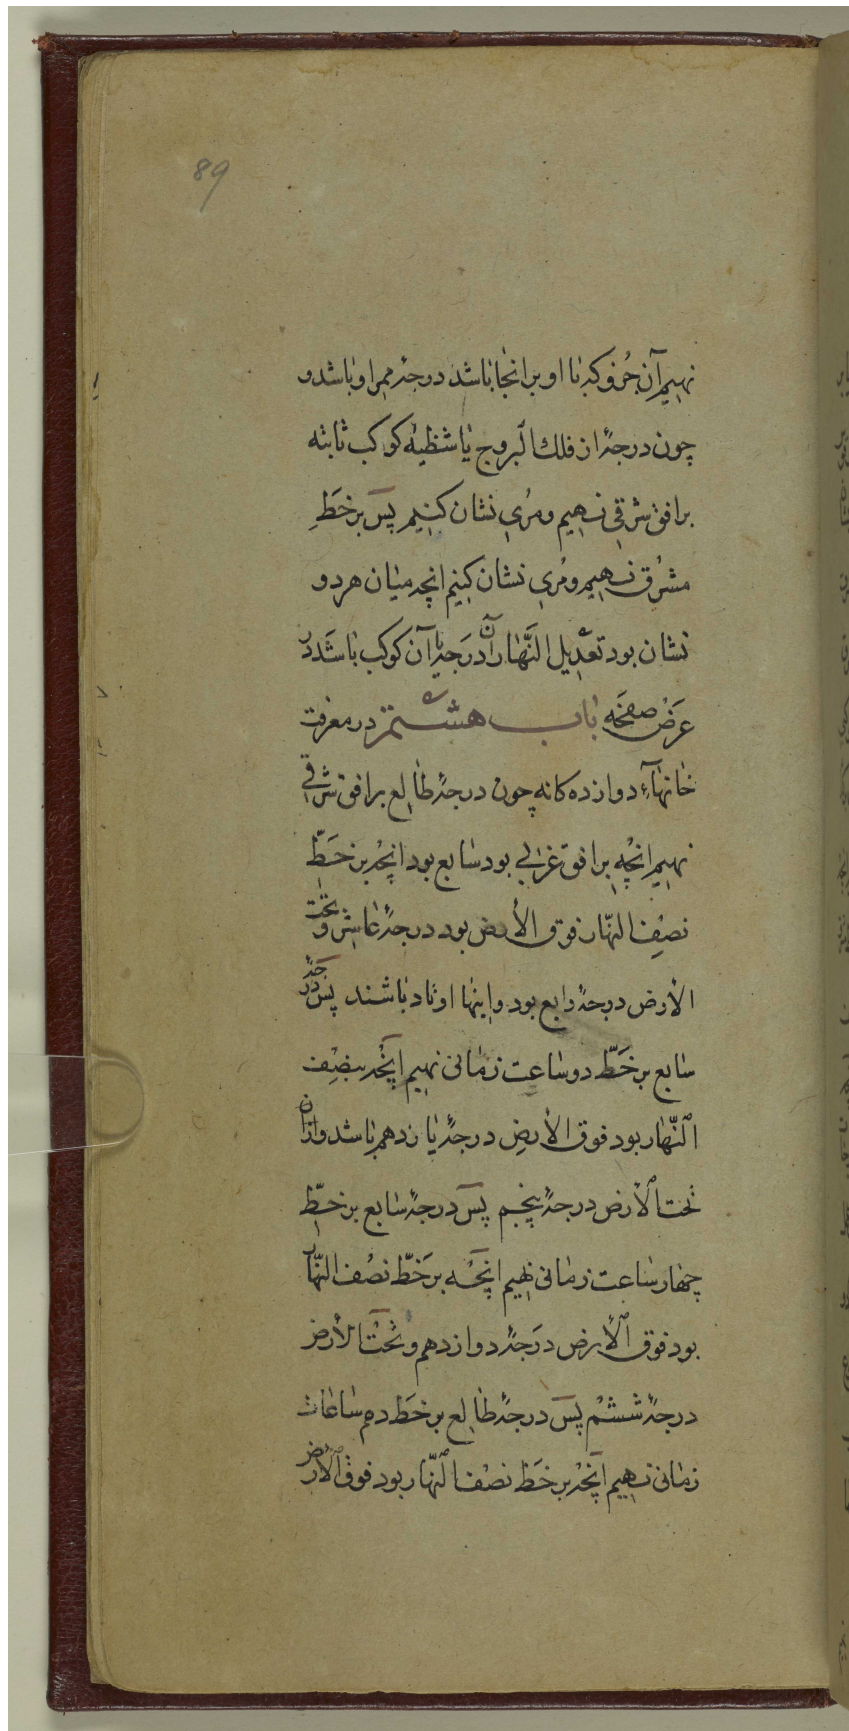 89
نهیم آن جزو که با او بر انجا باشد درجهٔ ممر او باشد و
چون درجهٔ از فلك البروج یا شظیهٔ کوکب ثابته
بر افق شرقی نهیم و مُری نشان کنیم پس بر خطِ
مشرق نهیم و مُری نشان کنیم انچه میان هر دو
نشان بود تعدیل النّهار آن درجه یا آن کوکب باشد در
عرض صفحه باب هشتم در معرفت
خانهاءِ دوازده کانه چون درجهٔ طالع بر افق شرقی
نهیم انچه بر افق غربی بود سابع بود انچه بر خطّ
نصف النهار فوق الأرض بود درجهٔ عاشر و تحت
الأرض درجهٔ رابع بود و اینها اوتاد باشند پس درجهٔ
سابع بر خطّ دو ساعت زمانی نهیم انچه بنصف
النّهار بود فوق الأرض درجهٔ یازدهم باشد و ازان
تحت الأرض درجهٔ پنجم پس درجهٔ سابع بر خطّ
چهار ساعت زمانی نهیم انچه بر خطّ نصف النّهار
بود فوق الأرض درجهٔ دوازدهم و تحت الأرض
درجهٔ ششم پس درجهٔ طالع بر خط دم ساعات
زمانی نهیم انچه بر خط نصف النّهار بود فوق الأرض